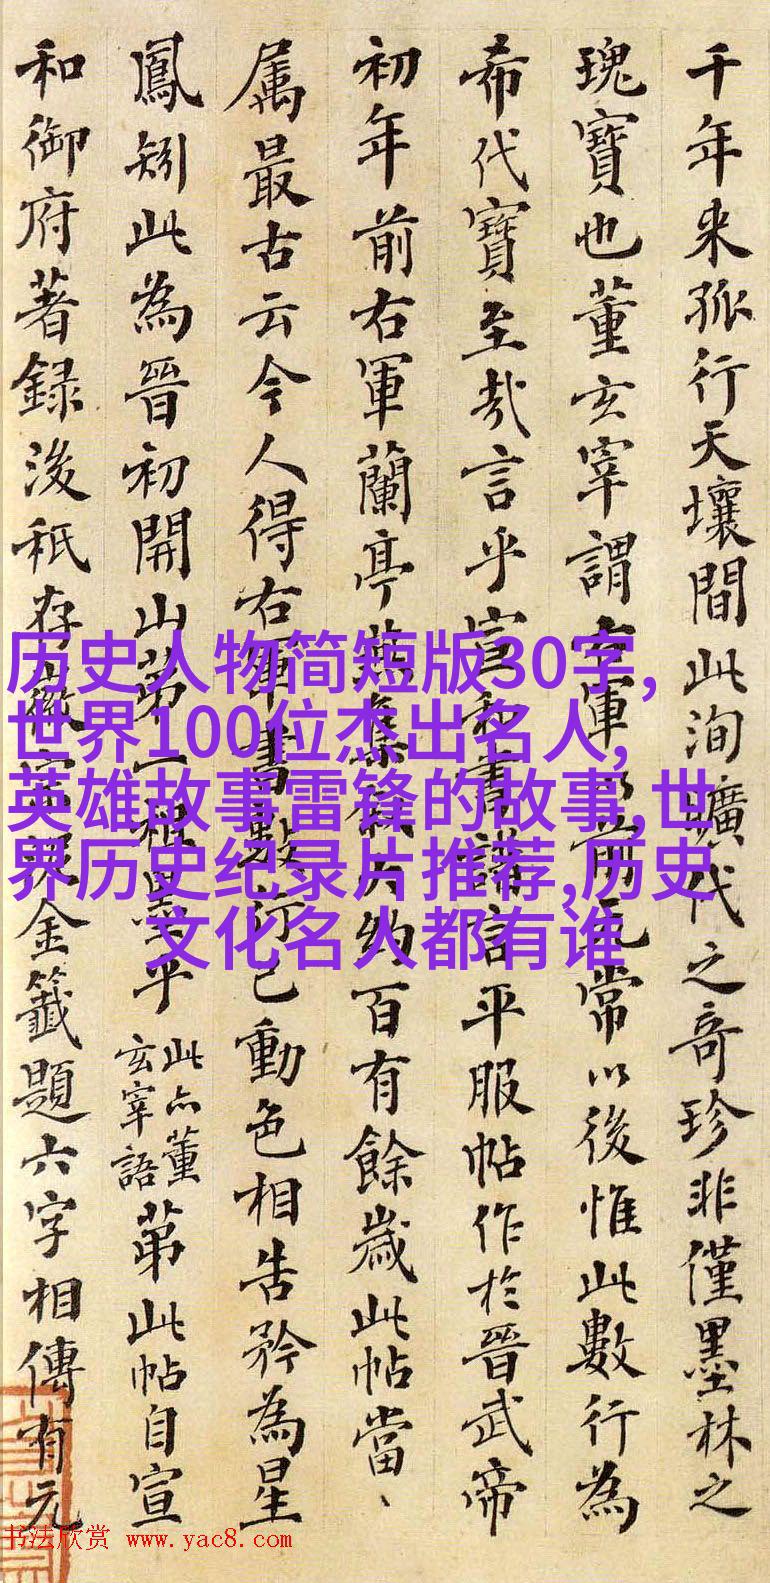 千年来孤行天壤間此洵曠代之奇珍非僅墨林之
瑰寶也董玄宰謂右軍以前元常以後惟此數行為
希代寶至哉言乎宣和書譜言平服帖作於晉武帝
初年前右軍蘭亭燕集敘大約百有餘歲此帖當、
属最古云今人得右軍書數行已動色相告矜為星
鳳矧此為晉初開山第一祖墨乎此亦董玄宰語第此帖自宣
和御府著録後秖存徽宗金籤題六字相傳有元
历史人物简短版30字,
世界100位杰出名人,
英雄故事雷锋的故事,世
界历史纪录片推荐,历史
文化名人都有谁
书法欣赏 www.yac8.com